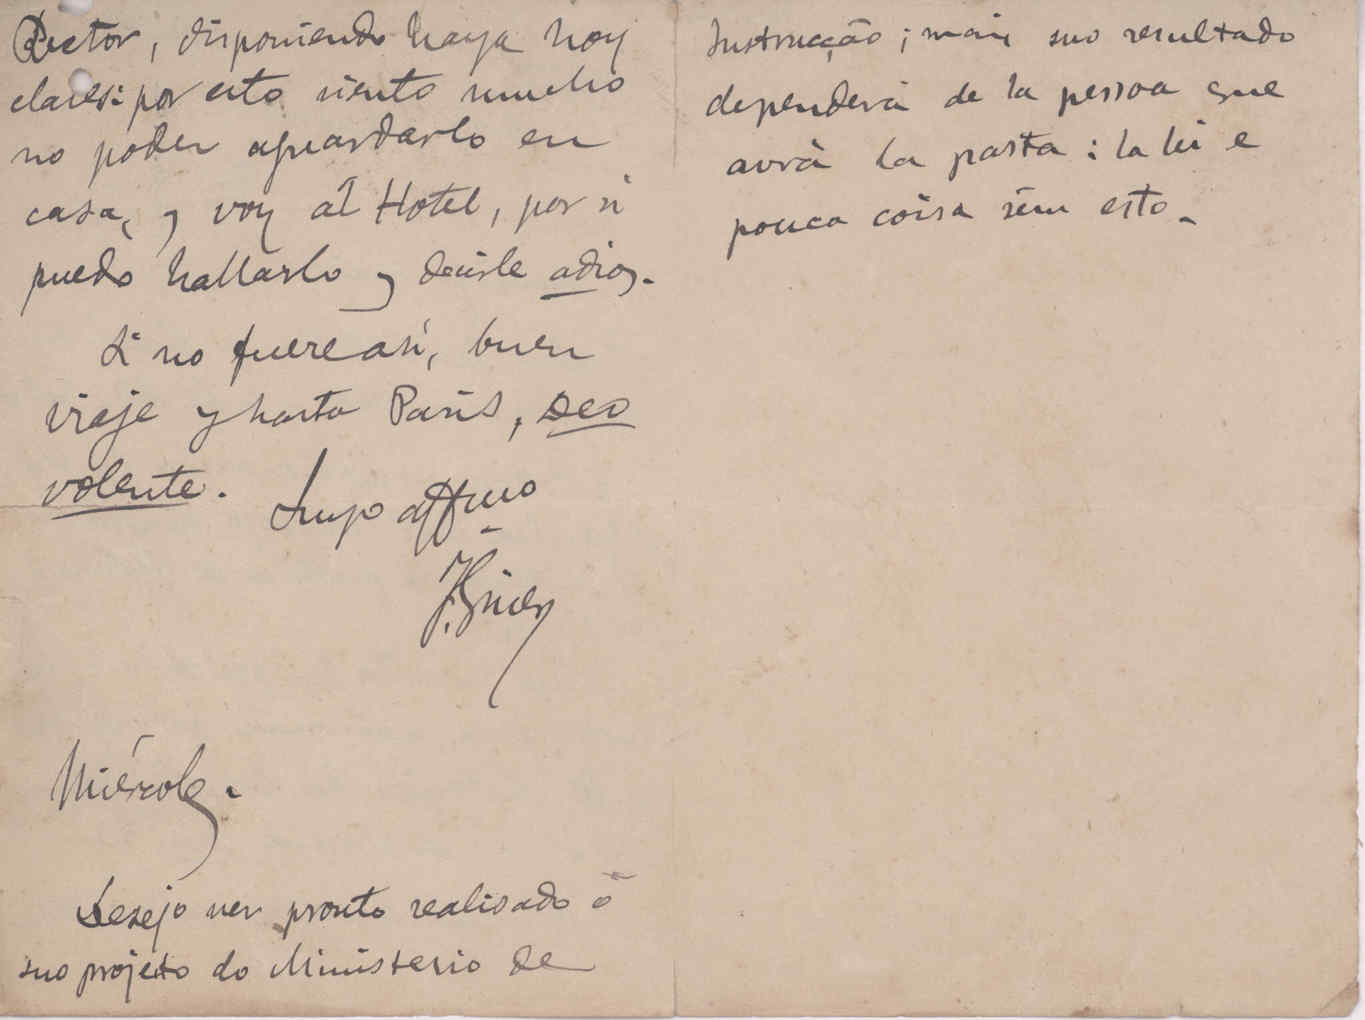 Rector, disponiendo haya hoy
clases: por esto siento mucho
no poder aguardarlo en
casa, y voy al Hotel, por si
puedo hallarlo y decirle adios.
Si no fuere así, buen
viaje y hasta Paris, Deo
volente.
Suyo affmo
F. Giner
Miércoles.
Desejo ver pronto realisado o
suo projeto do Ministerio de
Instrucção; mais suo resultado
dependerá de la pessoa que
avrà la pasta: la lei e
pouca coisa sem esto.